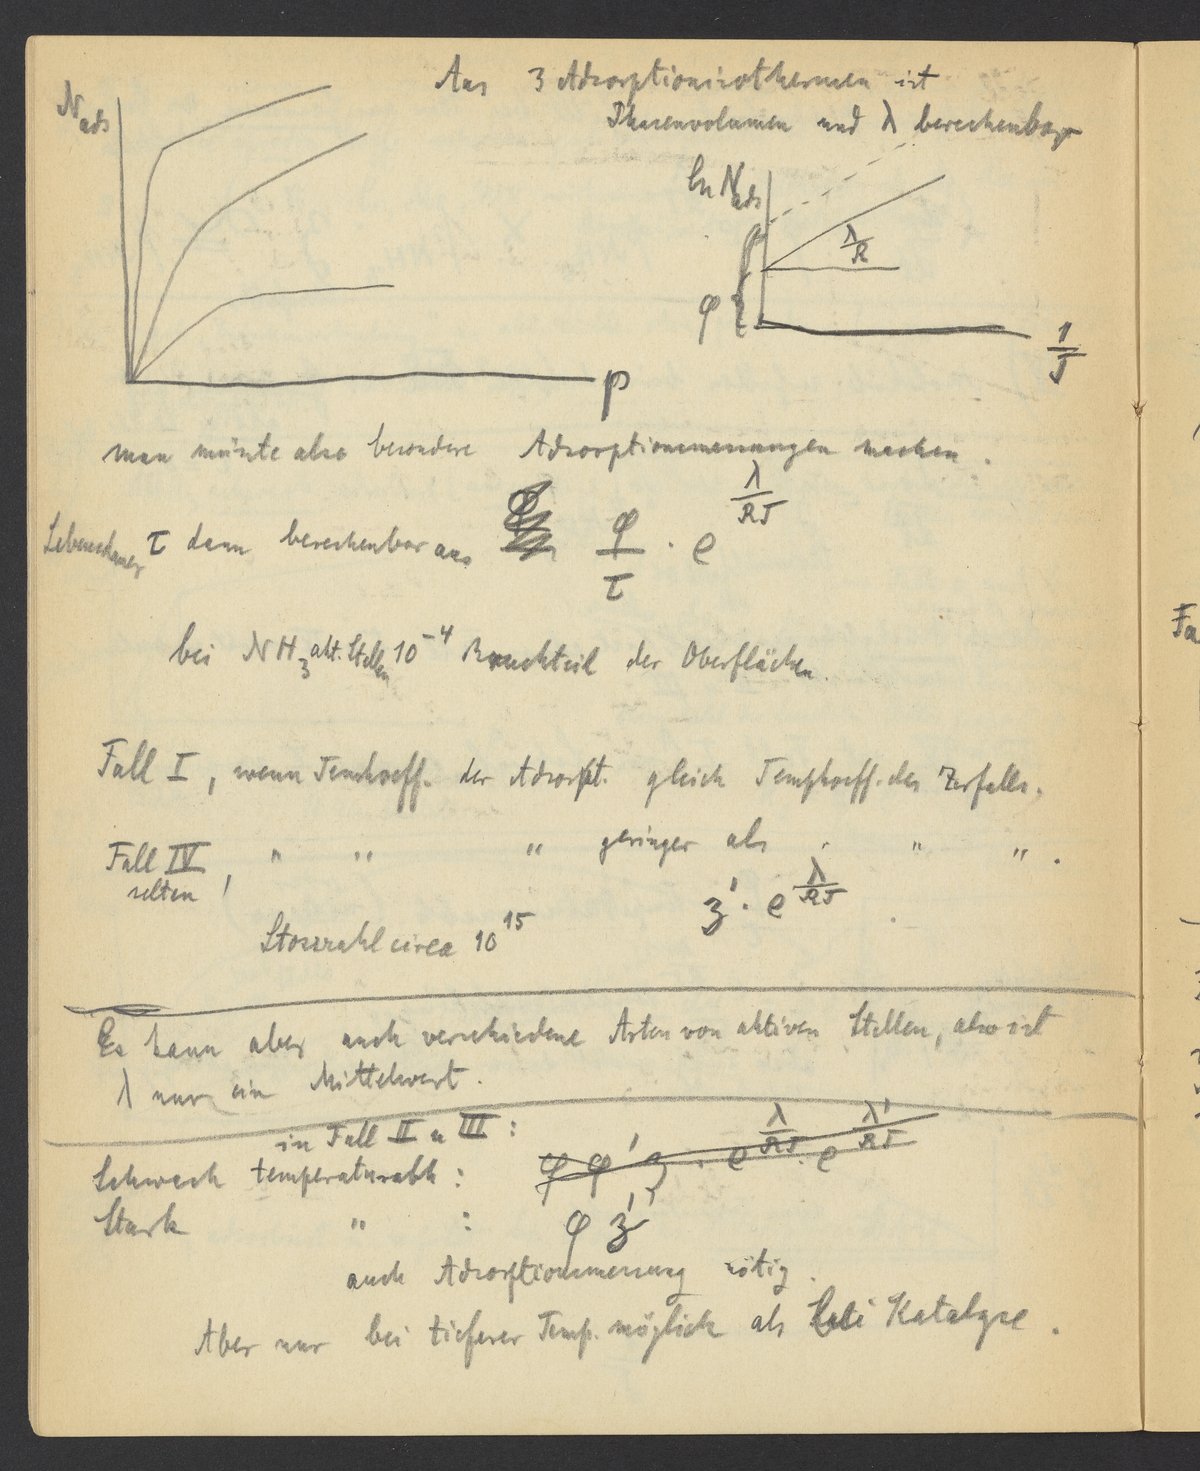 Aus 3 Adsorptionsisothermen ist
Phasenvolumen und λ berechenbar
N_ads
p
ln N_ads
φ
λ/R
1/T
man müsste also besondere Adsorptionsmessungen machen.
Lebensdauer τ dann berechenbar aus φ/τ · e^(λ/RT)
bei NH₃ akt. Stellen 10⁻⁴ Bruchteil der Oberflächen.
Fall I, wenn Tempkoeff. der Adsorpt. gleich Tempkoeff. des Zerfalls.
Fall IV, " " " geringer als " " ".
selten
z' · e^(λ/RT)
Stosszahl circa 10¹⁵
Es kann aber auch verschiedene Arten von aktiven Stellen, also ist
λ nur ein Mittelwert.
in Fall II u III:
Schwach temperaturabh: φ φ' z · e^(λ/RT) · e^(λ'/RT)
Stark " : φ z'
auch Adsorptionsmessung nötig.
Aber nur bei tieferer Temp. möglich als bei Katalyse.